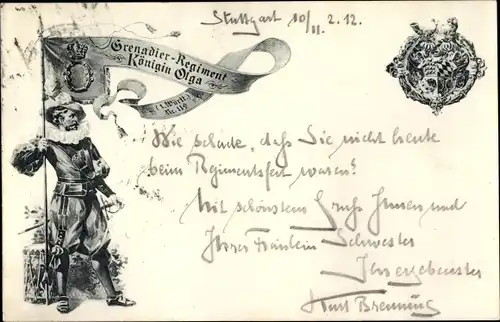 Stuttgart 10/II. 2. 12.
Grenadier-Regiment
Königin Olga
(1. Württ.)
Nr. 119
Wie schade, daß Sie nicht heute
beim Regimentsfest waren!
Mit schönstem Gruß Ihnen und
Ihrer Fräulein Schwester
Ihr ergebenster
Kurt